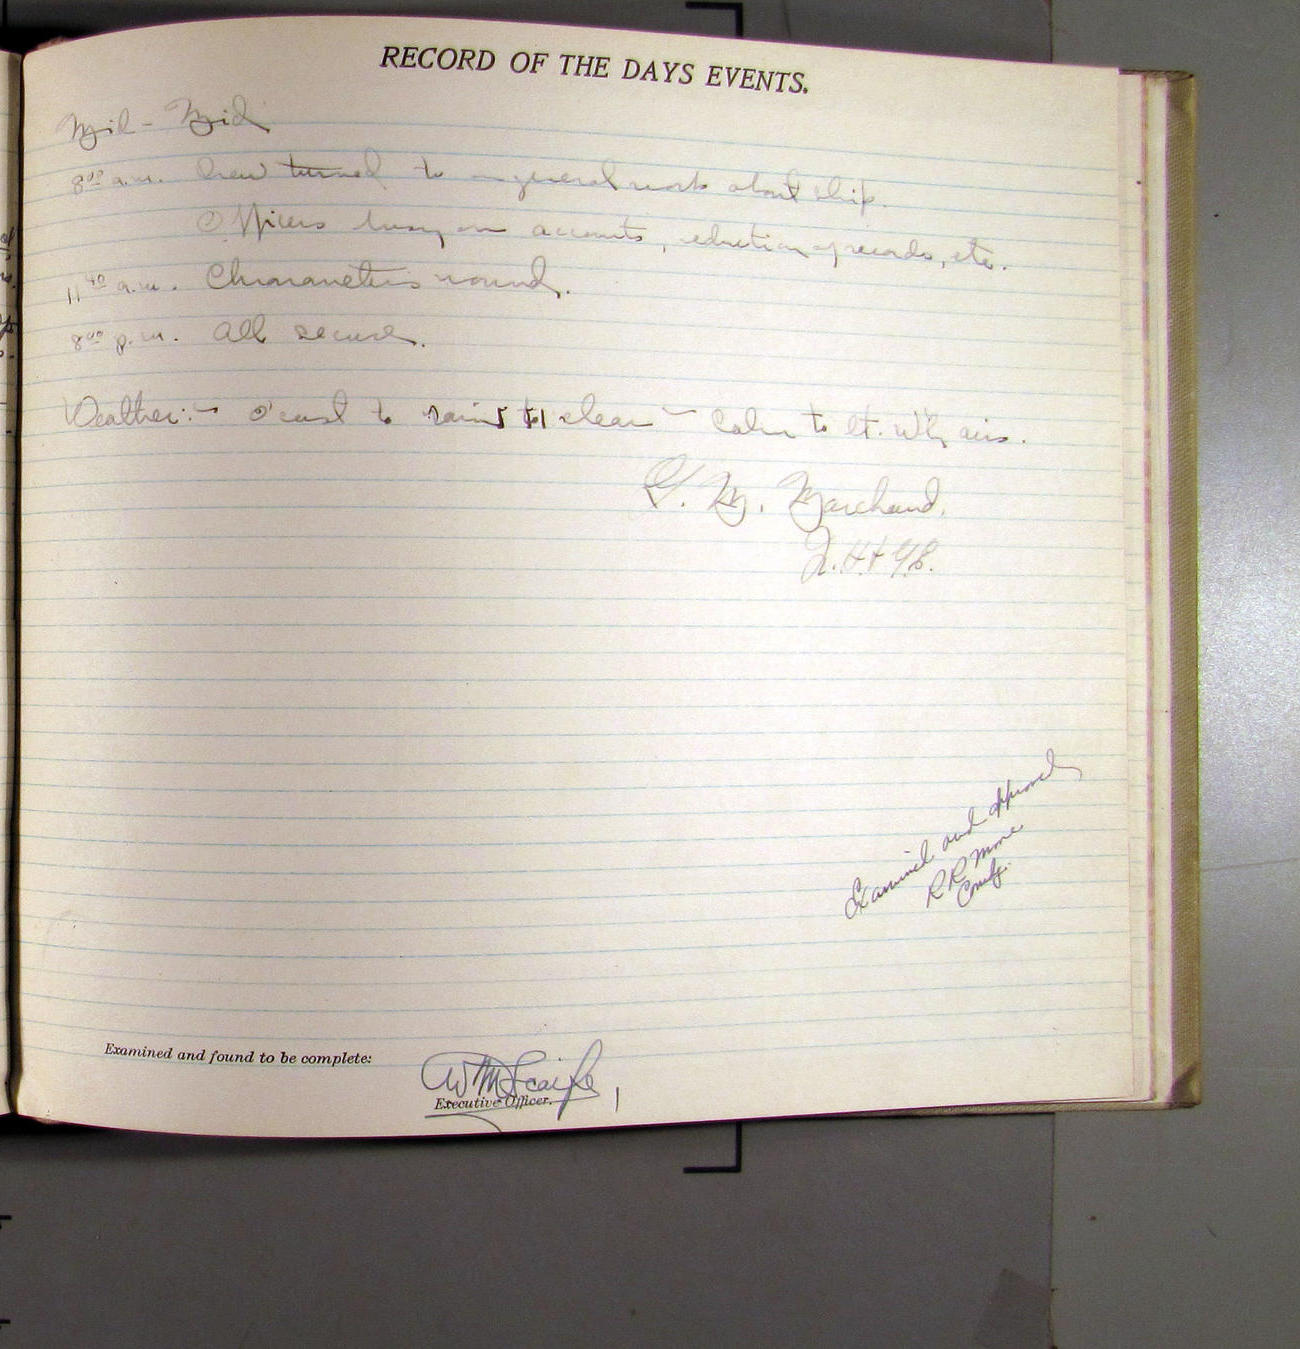 RECORD OF THE DAYS EVENTS.
Mid - Mid
8 00 a.m. Crew turned to on general work about ship.
Officers busy on accounts, reduction of records, etc.
11 40 a.m. Chronometers wound.
8 00 p.m. All secure.
Weather:- O'cast to rain to clear - Calm to lt. W'ly airs.
G. M. Marchand,
Jr. H. & G. E.
Examined and approved
R R Moore
Comdg.
Examined and found to be complete:
W M Scaife
Executive Officer.